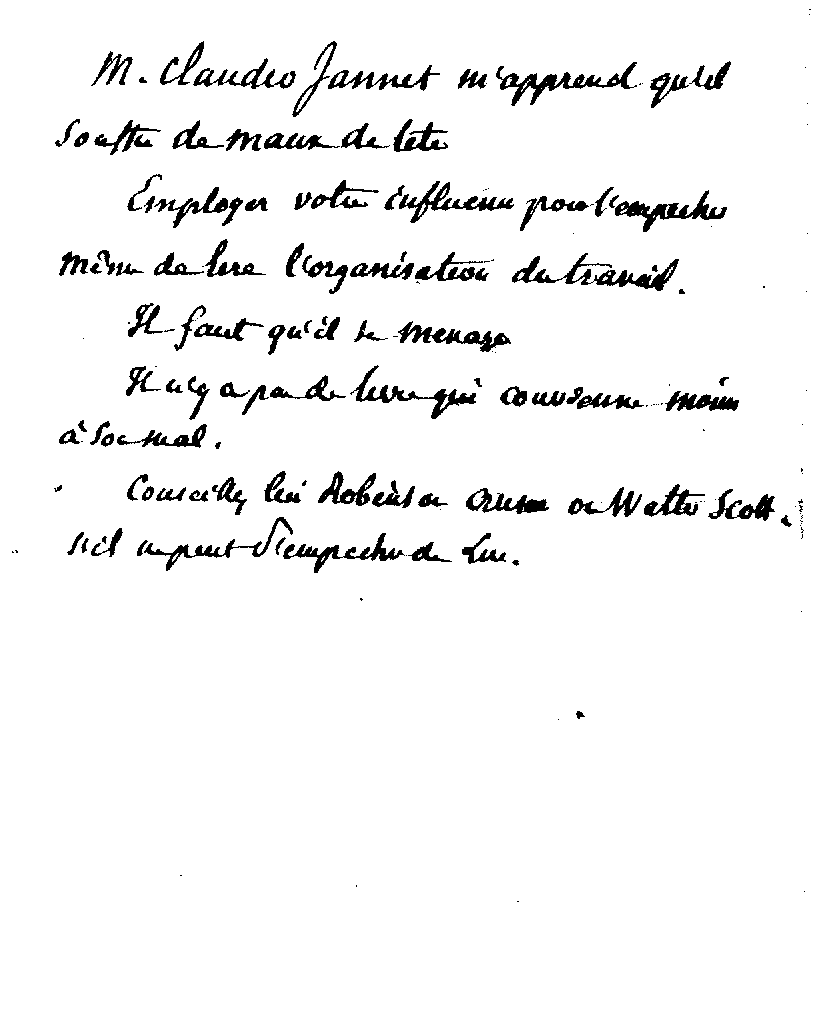 M. Claudio Jannet m'apprend qu'il
souffre de maux de tete
Employer votre influence pour l'empecher
même de lire l'organisation du travail.
Il faut qu'il se menage
Il n'y a pas de livre qui convienne moins
à son mal.
Conseillez lui Robinson Crusoe ou Walter Scott.
s'il ne peut s'empecher de lire.